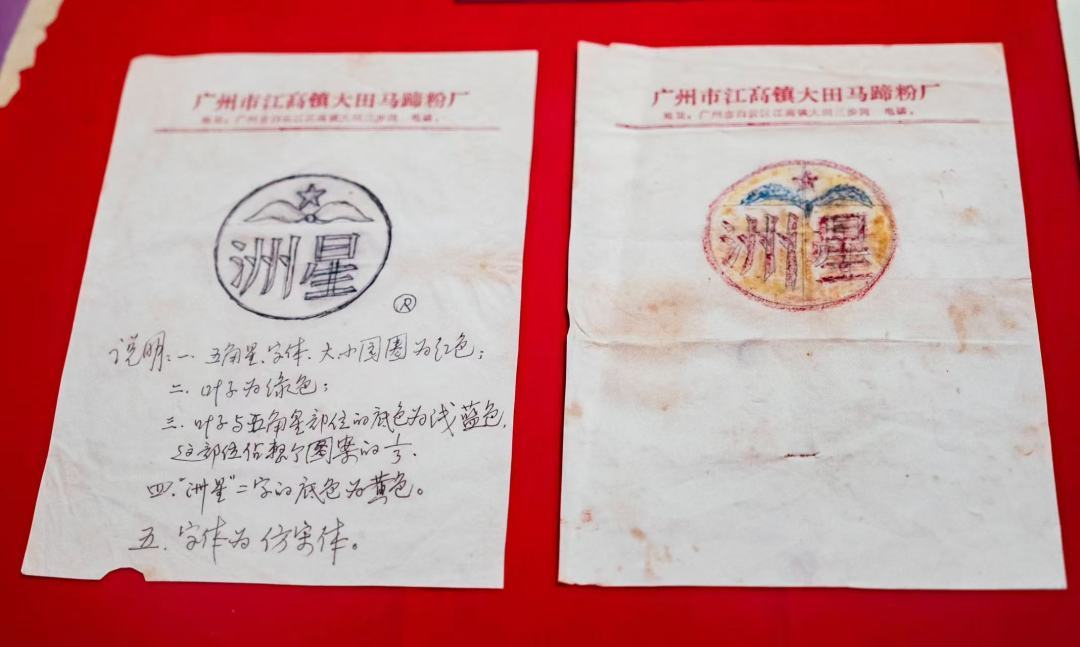 广州市江高镇大田马蹄粉厂
地址：广州市白云区江高镇大田三步岗 电话：
洲星
®
说明：一. 五角星、字体、大小园圈为红色；
二. 叶子为绿色；
三. 叶子与五角星部位的底色为浅蓝色，
这部位占整个图案的1/3.
四. “洲星”二字的底色为黄色。
五. 字体为仿宋体。
广州市江高镇大田马蹄粉厂
地址：广州市白云区江高镇大田三步岗 电话：
洲星